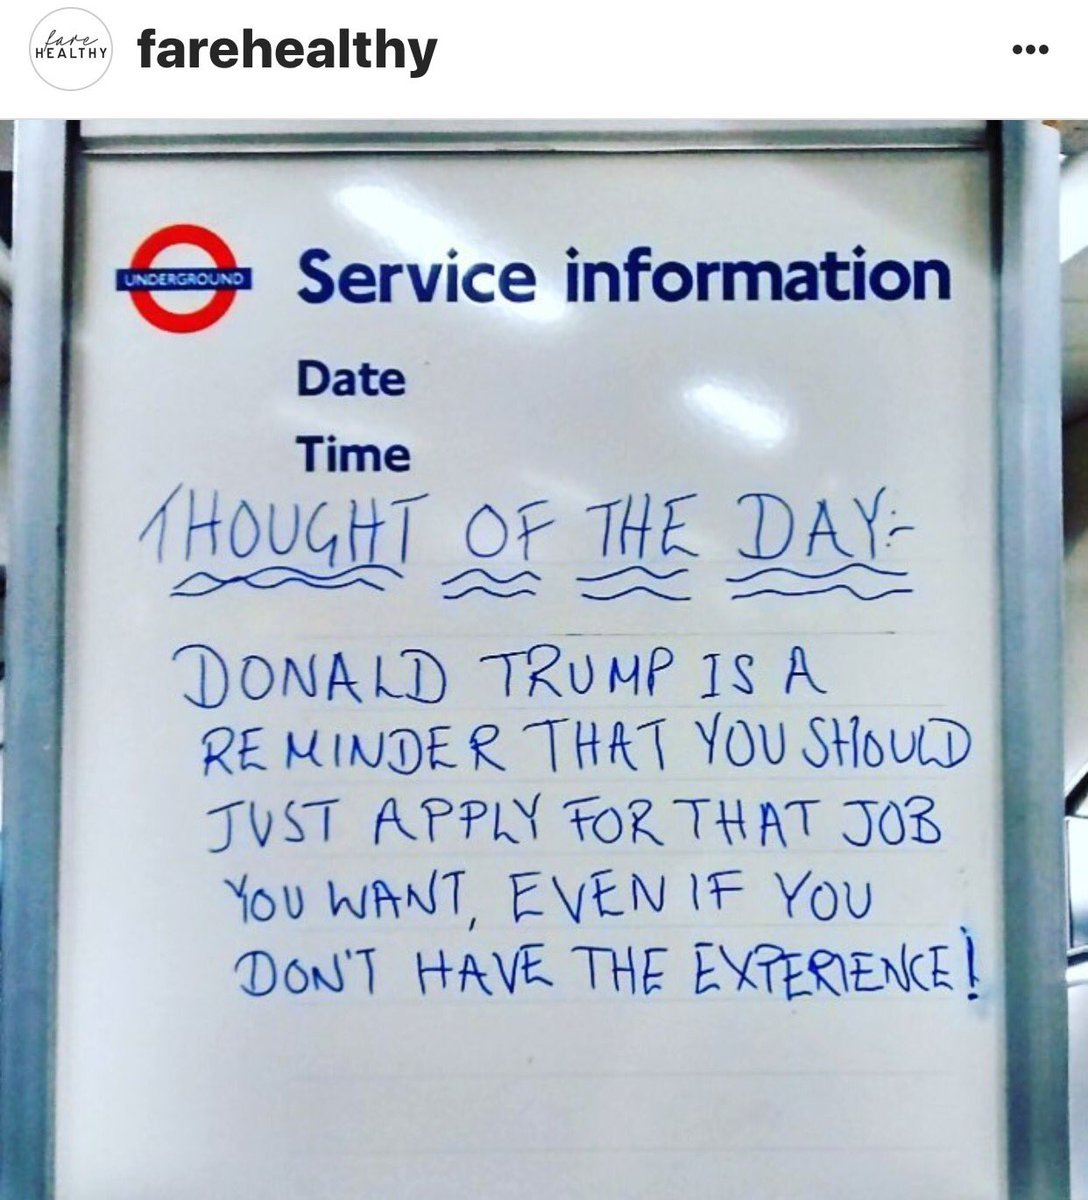 fare
HEALTHY
farehealthy
UNDERGROUND
Service information
Date
Time
THOUGHT OF THE DAY:-
DONALD TRUMP IS A
REMINDER THAT YOU SHOULD
JUST APPLY FOR THAT JOB
YOU WANT, EVEN IF YOU
DON'T HAVE THE EXPERIENCE!